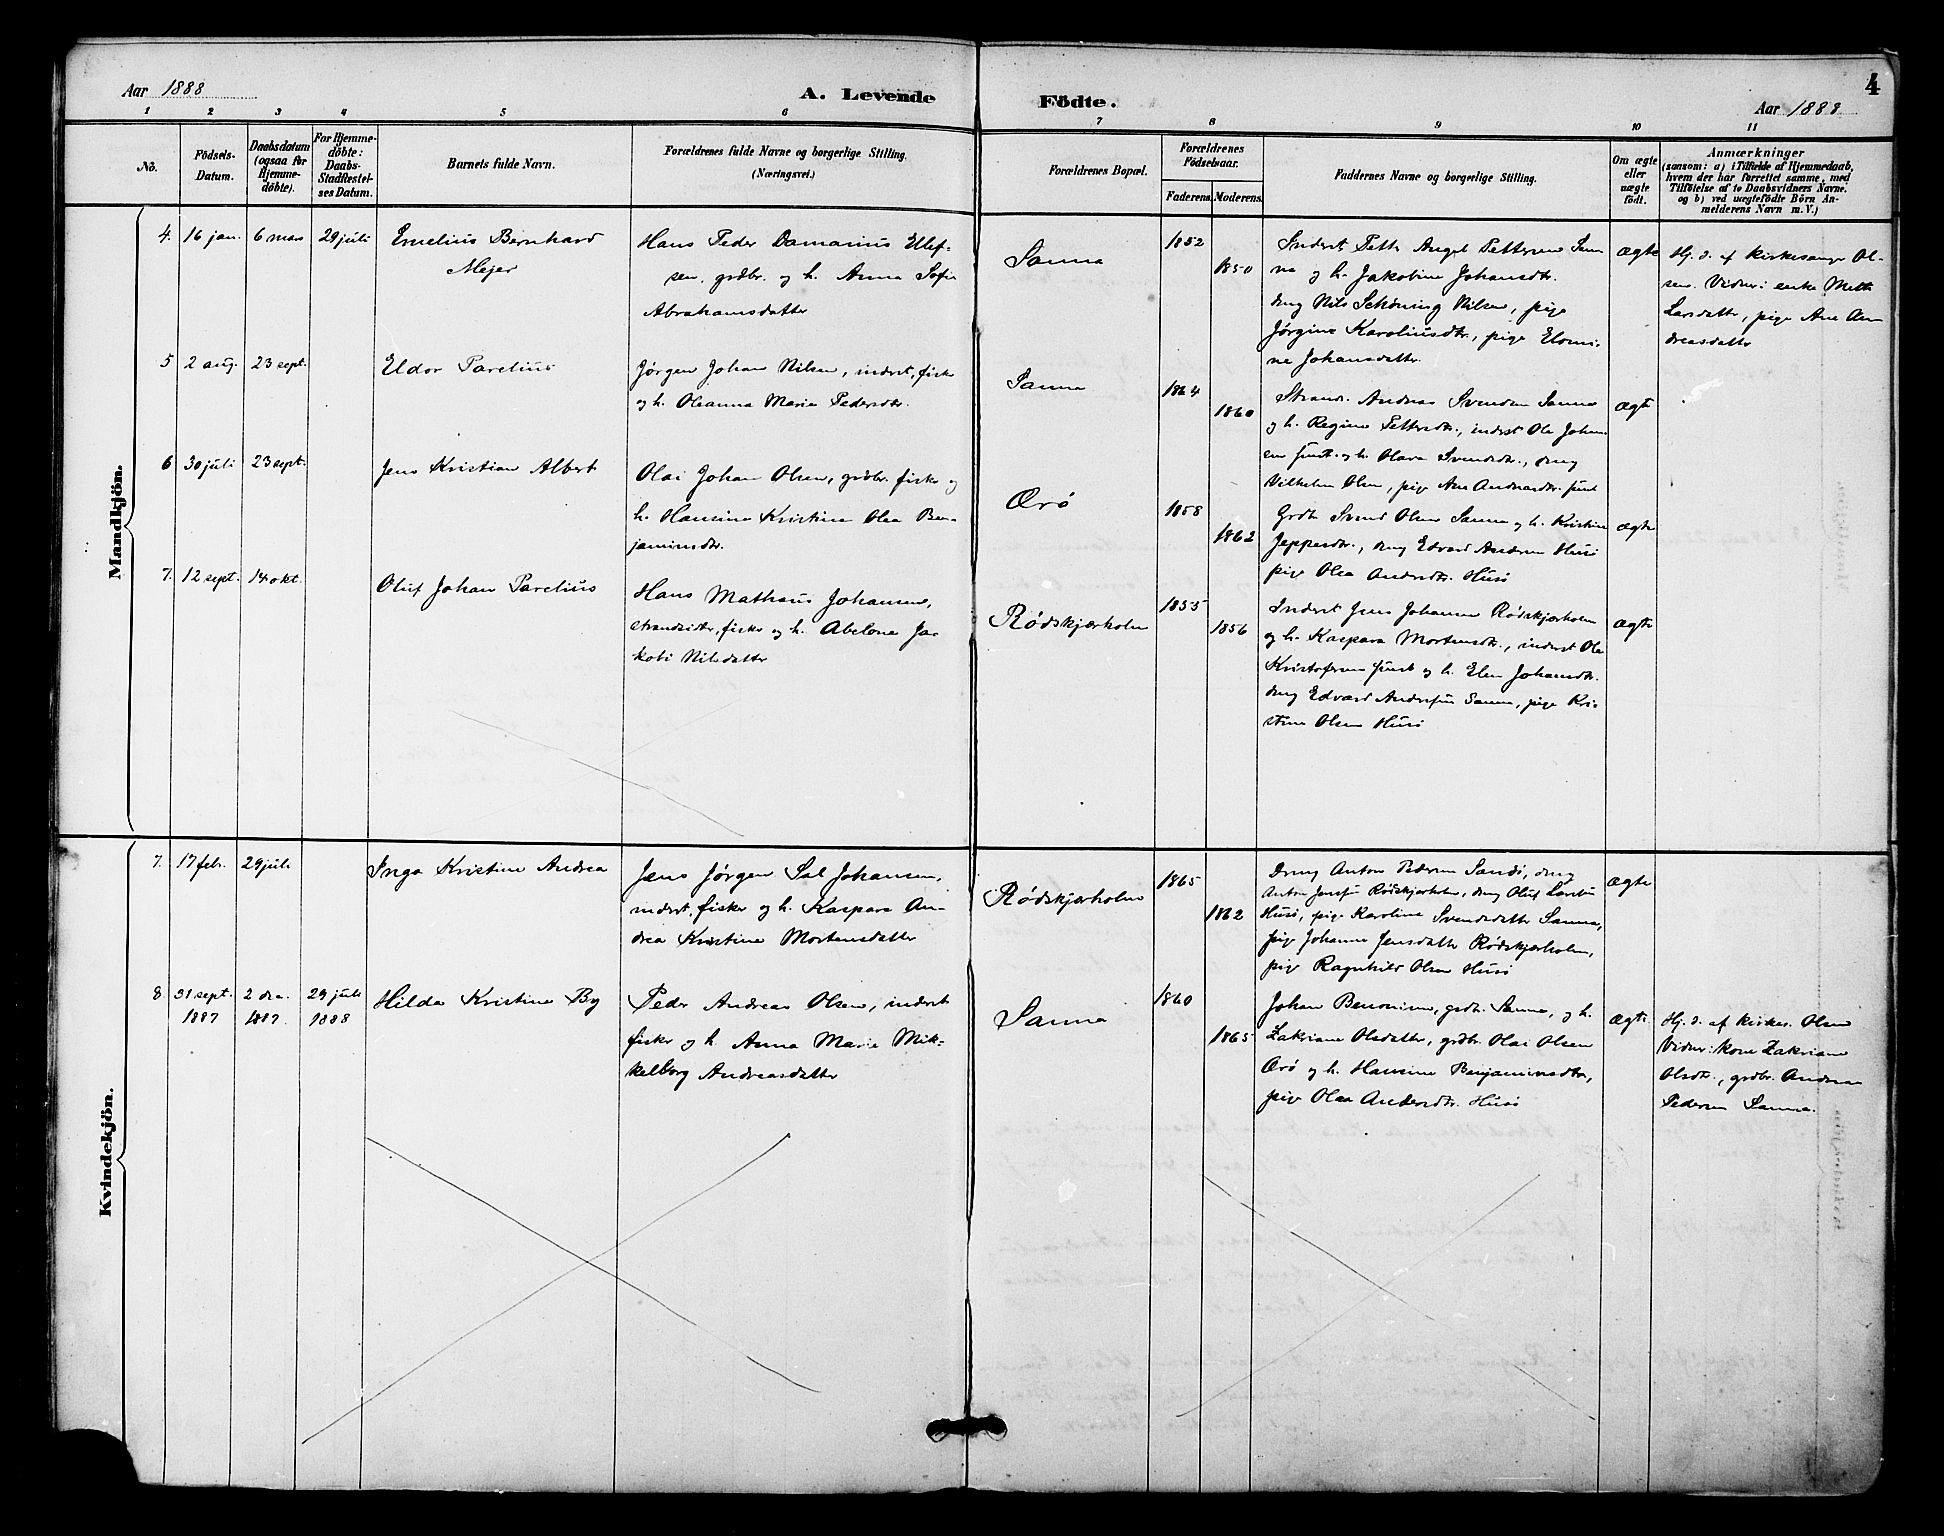 Aar 1888
A. Levende
Födte.
4
Aar 1888
1 2 3 4 5 6 7 8 9 10 11
No.
Födsels-
Datum.
Daabsdatum
(ogsaa for
Hjemme-
döbte).
For Hjemme-
döbte:
Daabs-
Stadfæstel-
ses Datum.
Barnets fulde Navn.
Forældrenes fulde Navne og borgerlige Stilling.
(Næringsvei.)
Forældrenes Bopæl.
Forældrenes
Födselsaar.
Faderens. Moderens.
Faddernes Navne og borgerlige Stilling.
Om ægte
eller
uægte
födt.
Anmærkninger
(saasom: a) i Tilfælde af Hjemmedaab,
hvem der har forrettet samme, med
Tilföielse af to Daabsvidners Navne.
og b) ved uægtefödte Börn An-
melderens Navn m. V.)
Mandkjön.
4. 16 jan. 6 mars 29 juli
Emelius Bernhard
Mejer
Hans Peder Damanius Ellef-
sen, grdbr. og h. Anna Sofie
Abrahamsdatter
Sanna
1852
1850
Inderst Petter Angel Pettersen San
na og h. Jakobine Johansdtr.
dreng Nils Schöning Nilsen, pige
Jørgine Karoliusdtr., pige Elomi-
ne Johansdatter.
ægte
Hj. d. af kirkesanger Ol-
sen. Vidner: enke Mette
Larsdatter, pige Ane An
dreasdatter
5 2 aug. 23 sept.
Eldor Parelius
Jørgen Johan Nilsen, inderst, fisker
og h. Oleanna Maria Pedersdtr.
Sanna
1864
1860
Strands. Andreas Svendsen Sanna
og h. Regine Pettersdtr., inderst Ole Johan
sen smst. og h. Olava Svendsdtr., dreng
Vilhelm Olsen, pige Ane Andreasdtr. smst
ægte
6 30 juli 23 sept.
Jens Kristian Albert
Olai Johan Olsen, grdbr. fisker og
h. Hansine Kristine Olea Ben-
jaminsdtr.
Ærø
1858
1862
Grdbr. Svend Olsen Sanna og h. Kristine
Jeppesdtr., dreng Edvard Andersen Husø
pige Olea Andersdtr. Husø
ægte
7. 12 sept. 14 okt.
Oluf Johan Parelius
Hans Mathæus Johansen,
strandsidder, fisker og h. Abelone Ja-
kobi Nilsdatter
Rødskjærholm
1855
1856
Inderst Jens Johansen Rødskjærholm
og h. Kaspara Mortensdtr., inderst Ole
Kristofersen smst og h. Elen Johansdtr.
dreng Edvard Andersen Sanna, pige Kri-
stine Olsen Husø
ægte
Kvindekjön.
7. 17 febr. 29 juli
Inga Kristine Andrea
Jens Jørgen Sal Johansen,
inderst, fisker og h. Kaspara An-
drea Kristine Mortensdatter
Rødskjærholm
1865
1862
Dreng Anton Pedersen Sandö, dreng
Anton Jensen Rødskjærholm, dreng Oluf Larsen
Husø, pige Karoline Svendsdatter Sanna,
pige Johanne Jensdatter Rødskjærholm,
pige Ragnhild Olsen Husø
ægte
8. 31 sept.
1887
2 dec.
1887.
29 juli
1888
Hilda Kristine By
Peder Andreas Olsen, inderst
fisker og h. Anna Maria Mik-
kelborg Andreasdatter
Sanna
1860
1865
Johan Benonisen, grdbr. Sanna, og h.
Zakriane Olsdatter, grdbr. Olai Olsen
Ærø og h. Hansine Benjaminsdtr,
pige Olea Andersdtr. Husø
ægte
Hj. d. af kirkes. Olsen
Vidner: Kone Zakriane
Olsdtr., grdbr. Andreas
Pedersen Sanna.